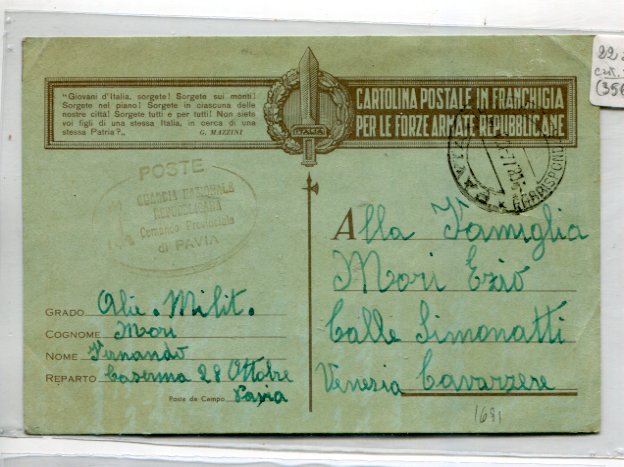 "Giovani d'Italia, sorgete! Sorgete sui monti!
Sorgete nel piano! Sorgete in ciascuna delle
nostre città! Sorgete tutti e per tutti! Non siete
voi figli di una stessa Italia, in cerca di una
stessa Patria?„
G. MAZZINI
ITALIA
CARTOLINA POSTALE IN FRANCHIGIA
PER LE FORZE ARMATE REPUBBLICANE
22
(356
POSTE
GUARDIA NAZIONALE
REPUBBLICANA
Comando Provinciale
di PAVIA
PAVIA
CORRISPONDENZE
Alla Famiglia
Mori Ezio
Calle Simonatti
Venezia Cavarzere
GRADO Alie. Milit.
COGNOME Mori
NOME Fernando
REPARTO Caserma 28 Ottobre
Posta da Campo Pavia
1691